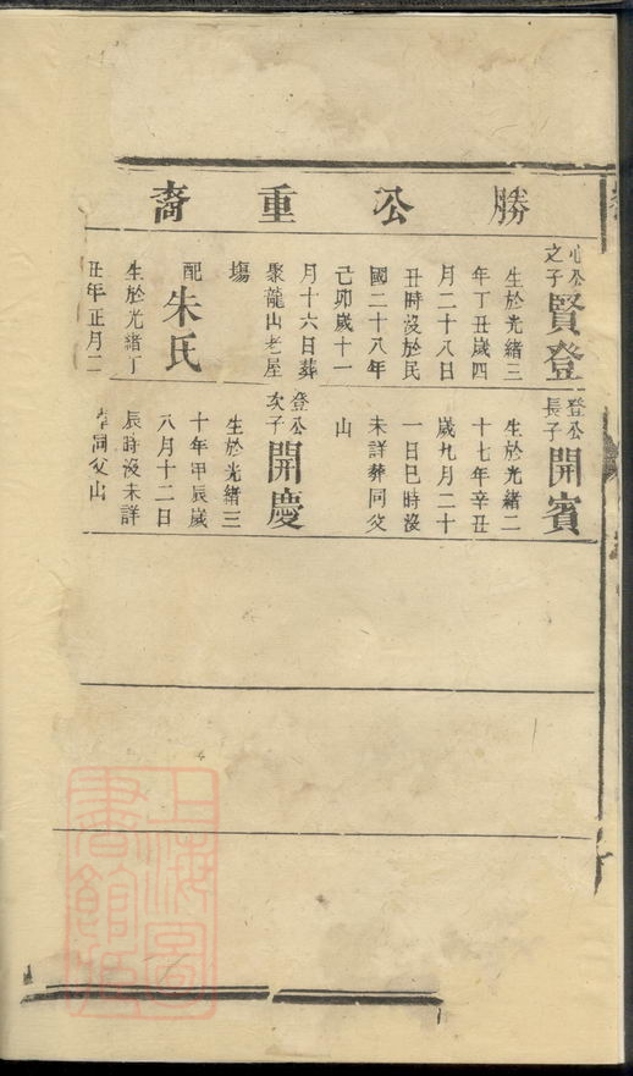 勝公重裔
心公之子賢登
生於光緒三
年丁丑歲四
月二十八日
丑時沒於民
國二十八年
己卯歲十一
月十六日葬
聚龍山老屋
塲
配朱氏
生於光緒丁
丑年正月二
登公長子開賓
生於光緒二
十七年辛丑
歲九月二十
一日巳時沒
未詳葬同父
山
登公次子開慶
生於光緒三
十年甲辰歲
八月十二日
辰時沒未詳
同父山
上海圖
書館藏